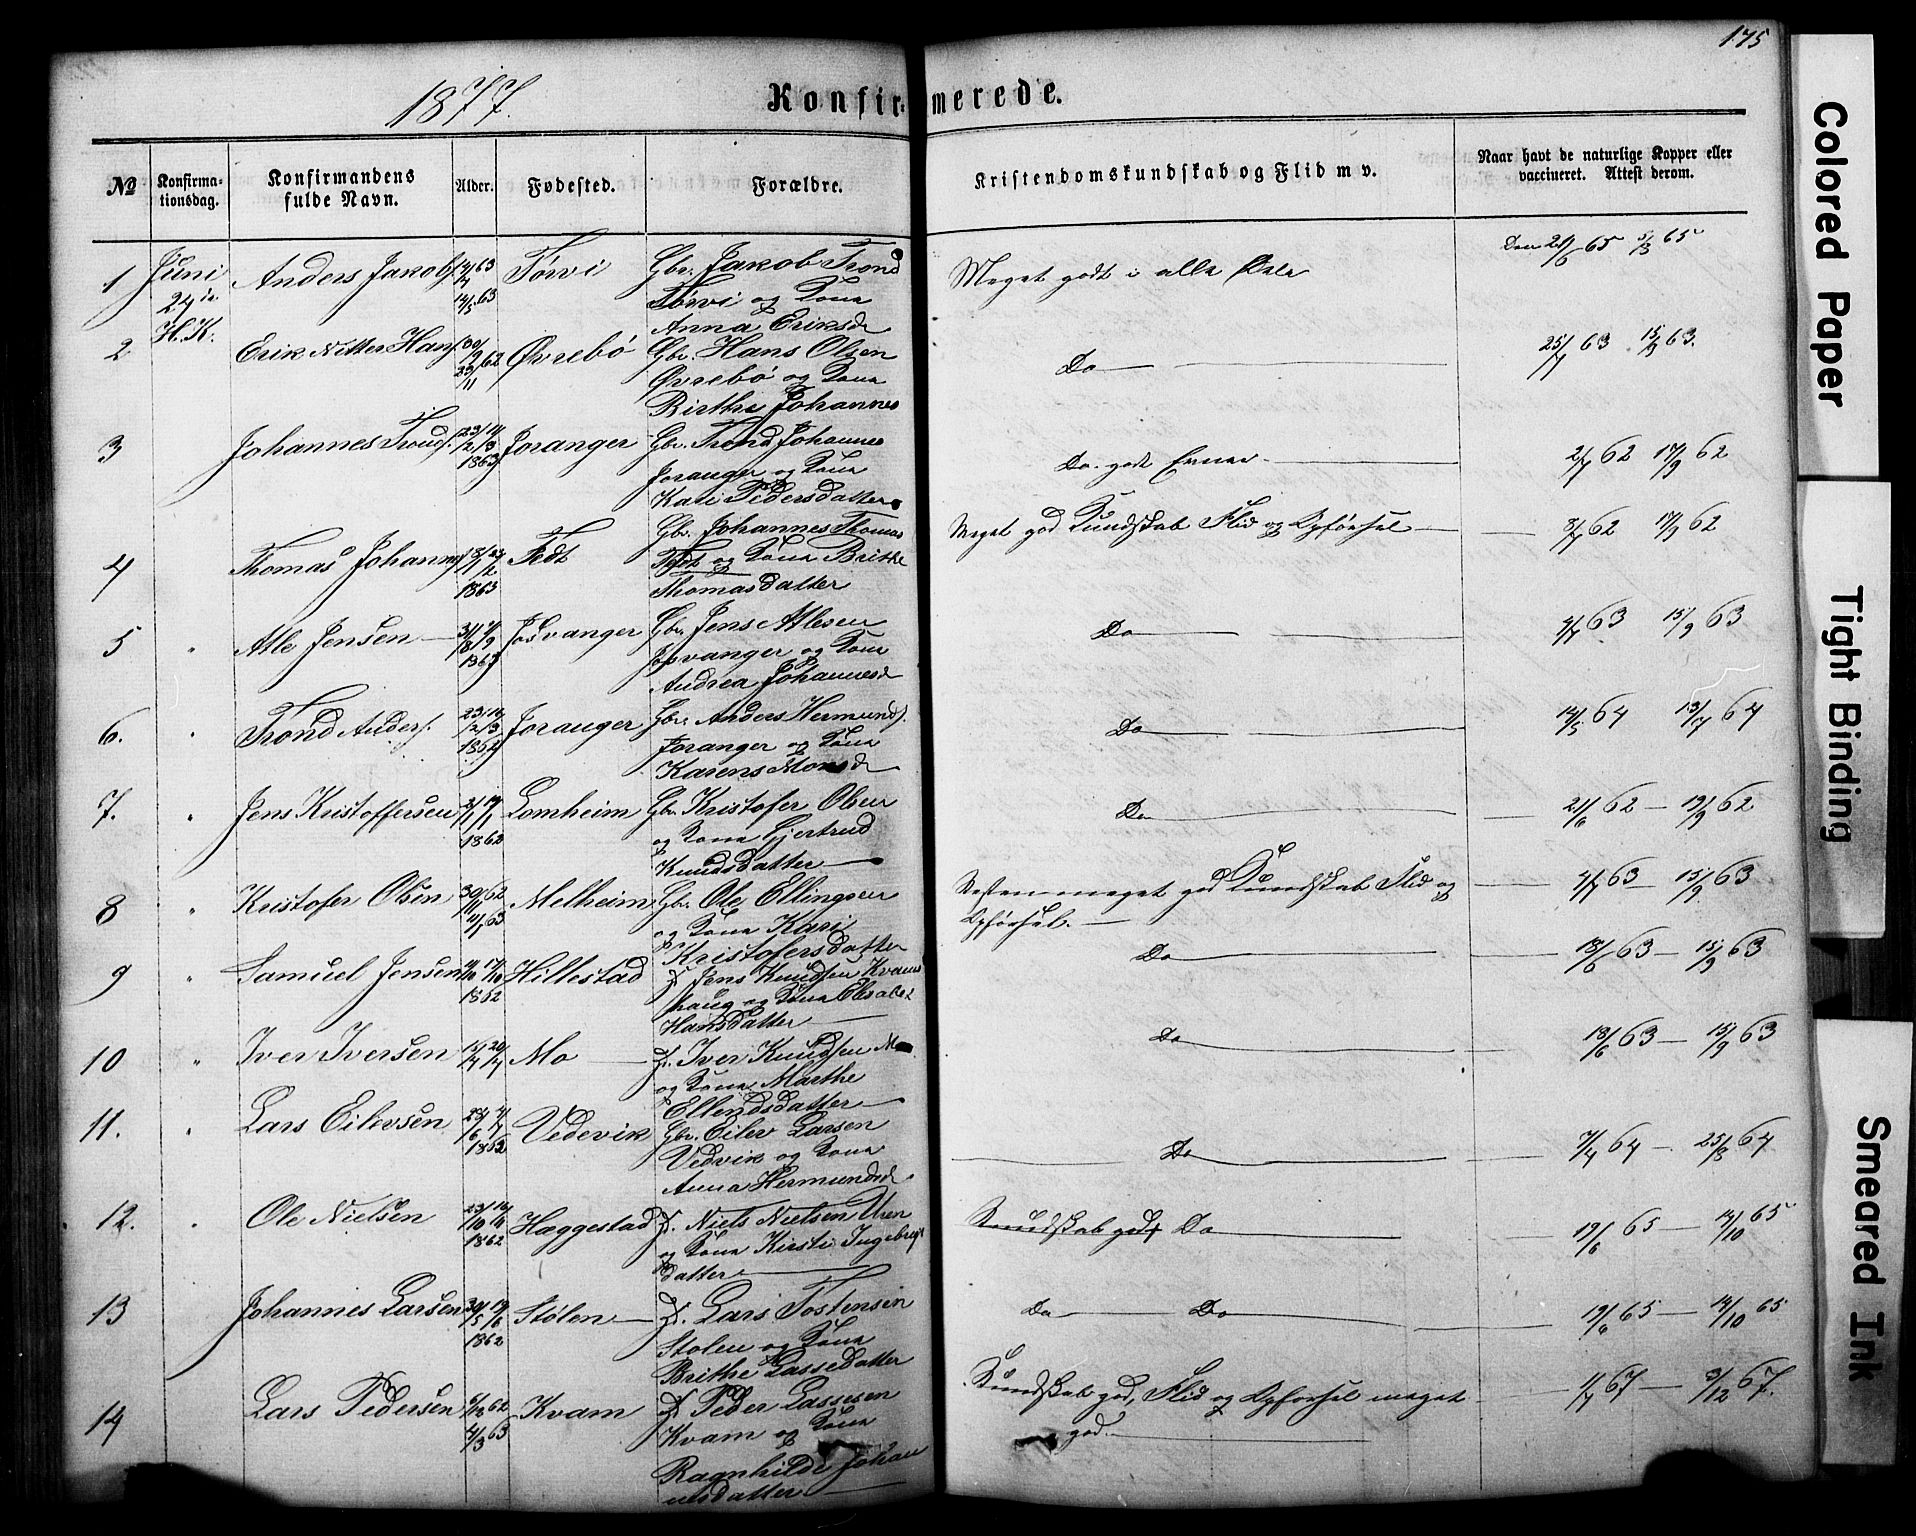 175
1877.
Konfirmerede.
No
Konfirmationsdag.
Konfirmandens fulde Navn.
Alder.
Fødested.
Forældre.
Kristendomskundskab og Flid m v.
Naar havt de naturlige Kopper eller vaccineret. Attest derom.
1 Juni 24de H.K. Anders Jakobs. Tørvi Gbr. Jakob Trond
Tørvi og Kona
Anna Eriksd
Meget godt i alle Dele 65 65
2 Erik Nitter Hans. Øvrebö Gbr. Hans Olsen
Øvrebö og Kona
Birthe Johannes
Do 63 15/9 63.
3 Johannes Trond. 1863 Joranger Gbr. Trond Johannes
Joranger og Kona
Kari Pedersdatter
Do. godt Evner 62 17/9 62
4 Thomas Johanns. 1863 Fedt Gbr. Johannes Thomas
Fedt og Kona Brithe
Thomasdatter
Meget god Kundskab Flid og Opførsel 62 17/9 62
5 " Atle Jensen 1863 Josvanger Gbr. Jens Atlesen
Josvanger og Kona
Andrea Johannesd
Do 63 15/9 63
6. " Trond Anders. 23/2 1862 Joranger Gbr. Anders Hermunds.
Joranger og Kona
Karens Monsd
Do 14/5 64 13/7 64
7. " Jens Kristoffersen 1862 Lomheim Gbr. Kristofer Olsen
og Kona Gjertrud
Knudsdatter
Do 21/6 62 19/9 62
8 " Kristofer Olsen 62 63 Melheim Gbr. Ole Ellingsen
og Kona Kari
Kristofersdatter
Næsten meget god Kundskab Flid og
Opførsel. 63 15/9 63
9 " Samuel Jensen 1862 Hillestad Jens Knudsen Kvams
haug og Kona Elisabet
Hansdatter
Do 18/6 63 15/9 63
10 " Iver Iversen Mo Iver Knudsen Mo
og Kona Marthe
Ellendsdatter
Do 18/6 63 15/9 63
11. " Lars Eilevsen 1862 Vedevik Gbr. Eilev Larsen
Vedvik og Kona
Anna Hermundsd
Do 7/4 64 25/8 64
12. " Ole Nielsen 1862 Hæggestad Niels Nielsen Uren
og Kona Kirsti Ingebrigt
datter
Kundskab god Do 19/6 65 14/10 65
13 " Johannes Larsen 30/5 19/6 1862 Stølen Lars Tostensen
Stolen og Kona
Brithe Lassedatter
Do Do 19/6 65 14/10 65
14 Lars Pedersen 6/12 62 4/3 63 Kvam Peder Lassesen
Kvam og Kona
Ragnhilde Johan
nesdatter
Kundskab god, Flid og Opførsel meget
god. 67 3/12 67.
Colored Paper
Tight Binding
Smeared Ink